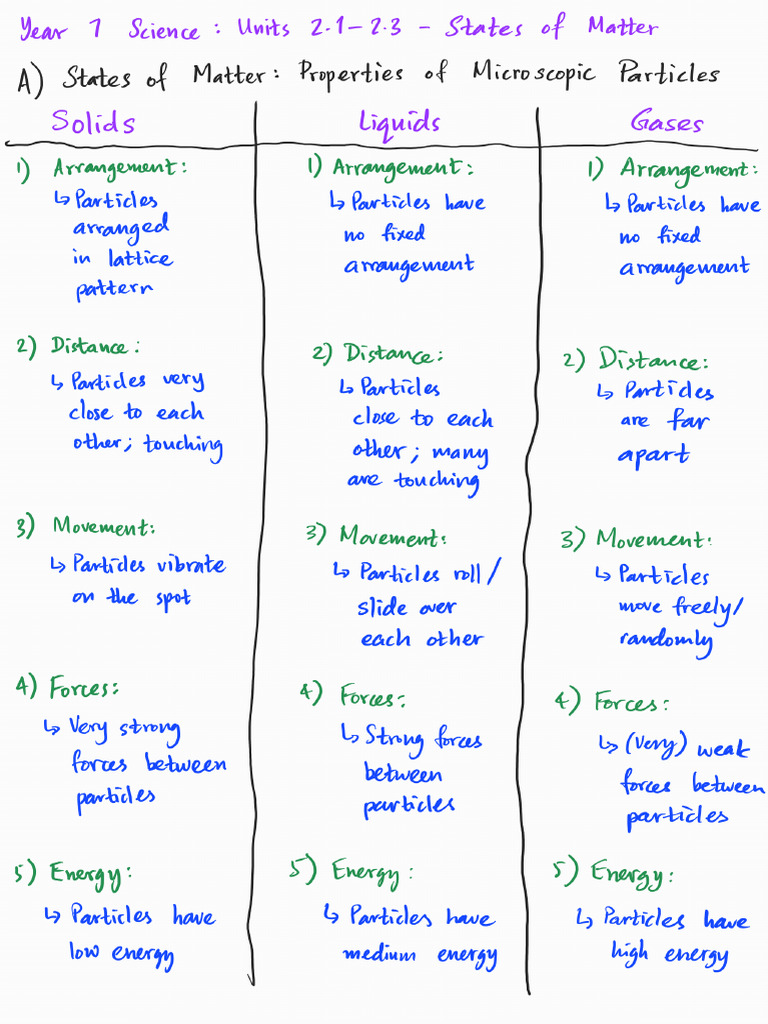 Year 7 Science: Units 2.1-2.3 - States of Matter
A) States of Matter: Properties of Microscopic Particles
Solids
1) Arrangement:
↳ Particles
arranged
in lattice
pattern
2) Distance:
↳ Particles very
close to each
other; touching
3) Movement:
↳ Particles vibrate
on the spot
4) Forces:
↳ Very strong
forces between
particles
5) Energy:
↳ Particles have
low energy
Liquids
1) Arrangement:
↳ Particles have
no fixed
arrangement
2) Distance:
↳ Particles
close to each
other; many
are touching
3) Movement:
↳ Particles roll/
slide over
each other
4) Forces:
↳ Strong forces
between
particles
5) Energy:
↳ Particles have
medium energy
Gases
1) Arrangement:
↳ Particles have
no fixed
arrangement
2) Distance:
↳ Particles
are far
apart
3) Movement:
↳ Particles
move freely/
randomly
4) Forces:
↳ (Very) weak
forces between
particles
5) Energy:
↳ Particles have
high energy